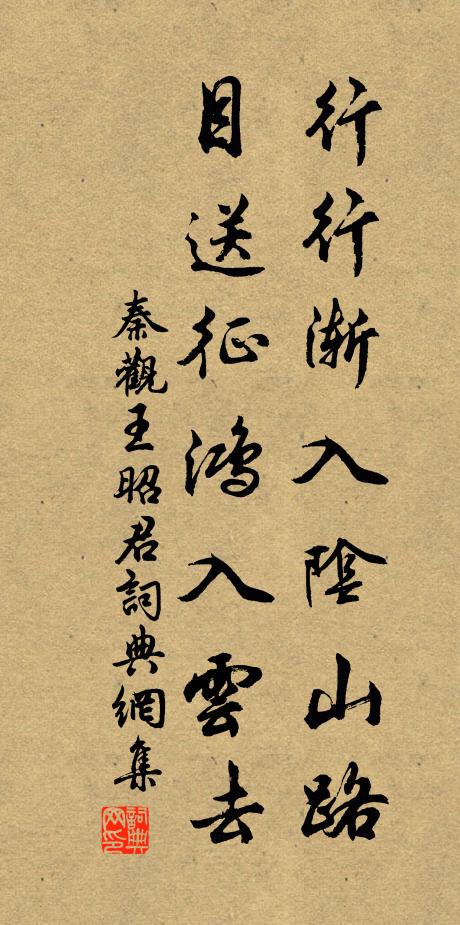 行行漸入陰山路
目送征鴻入雲去
秦觀王昭君詞典網集
詞典网印